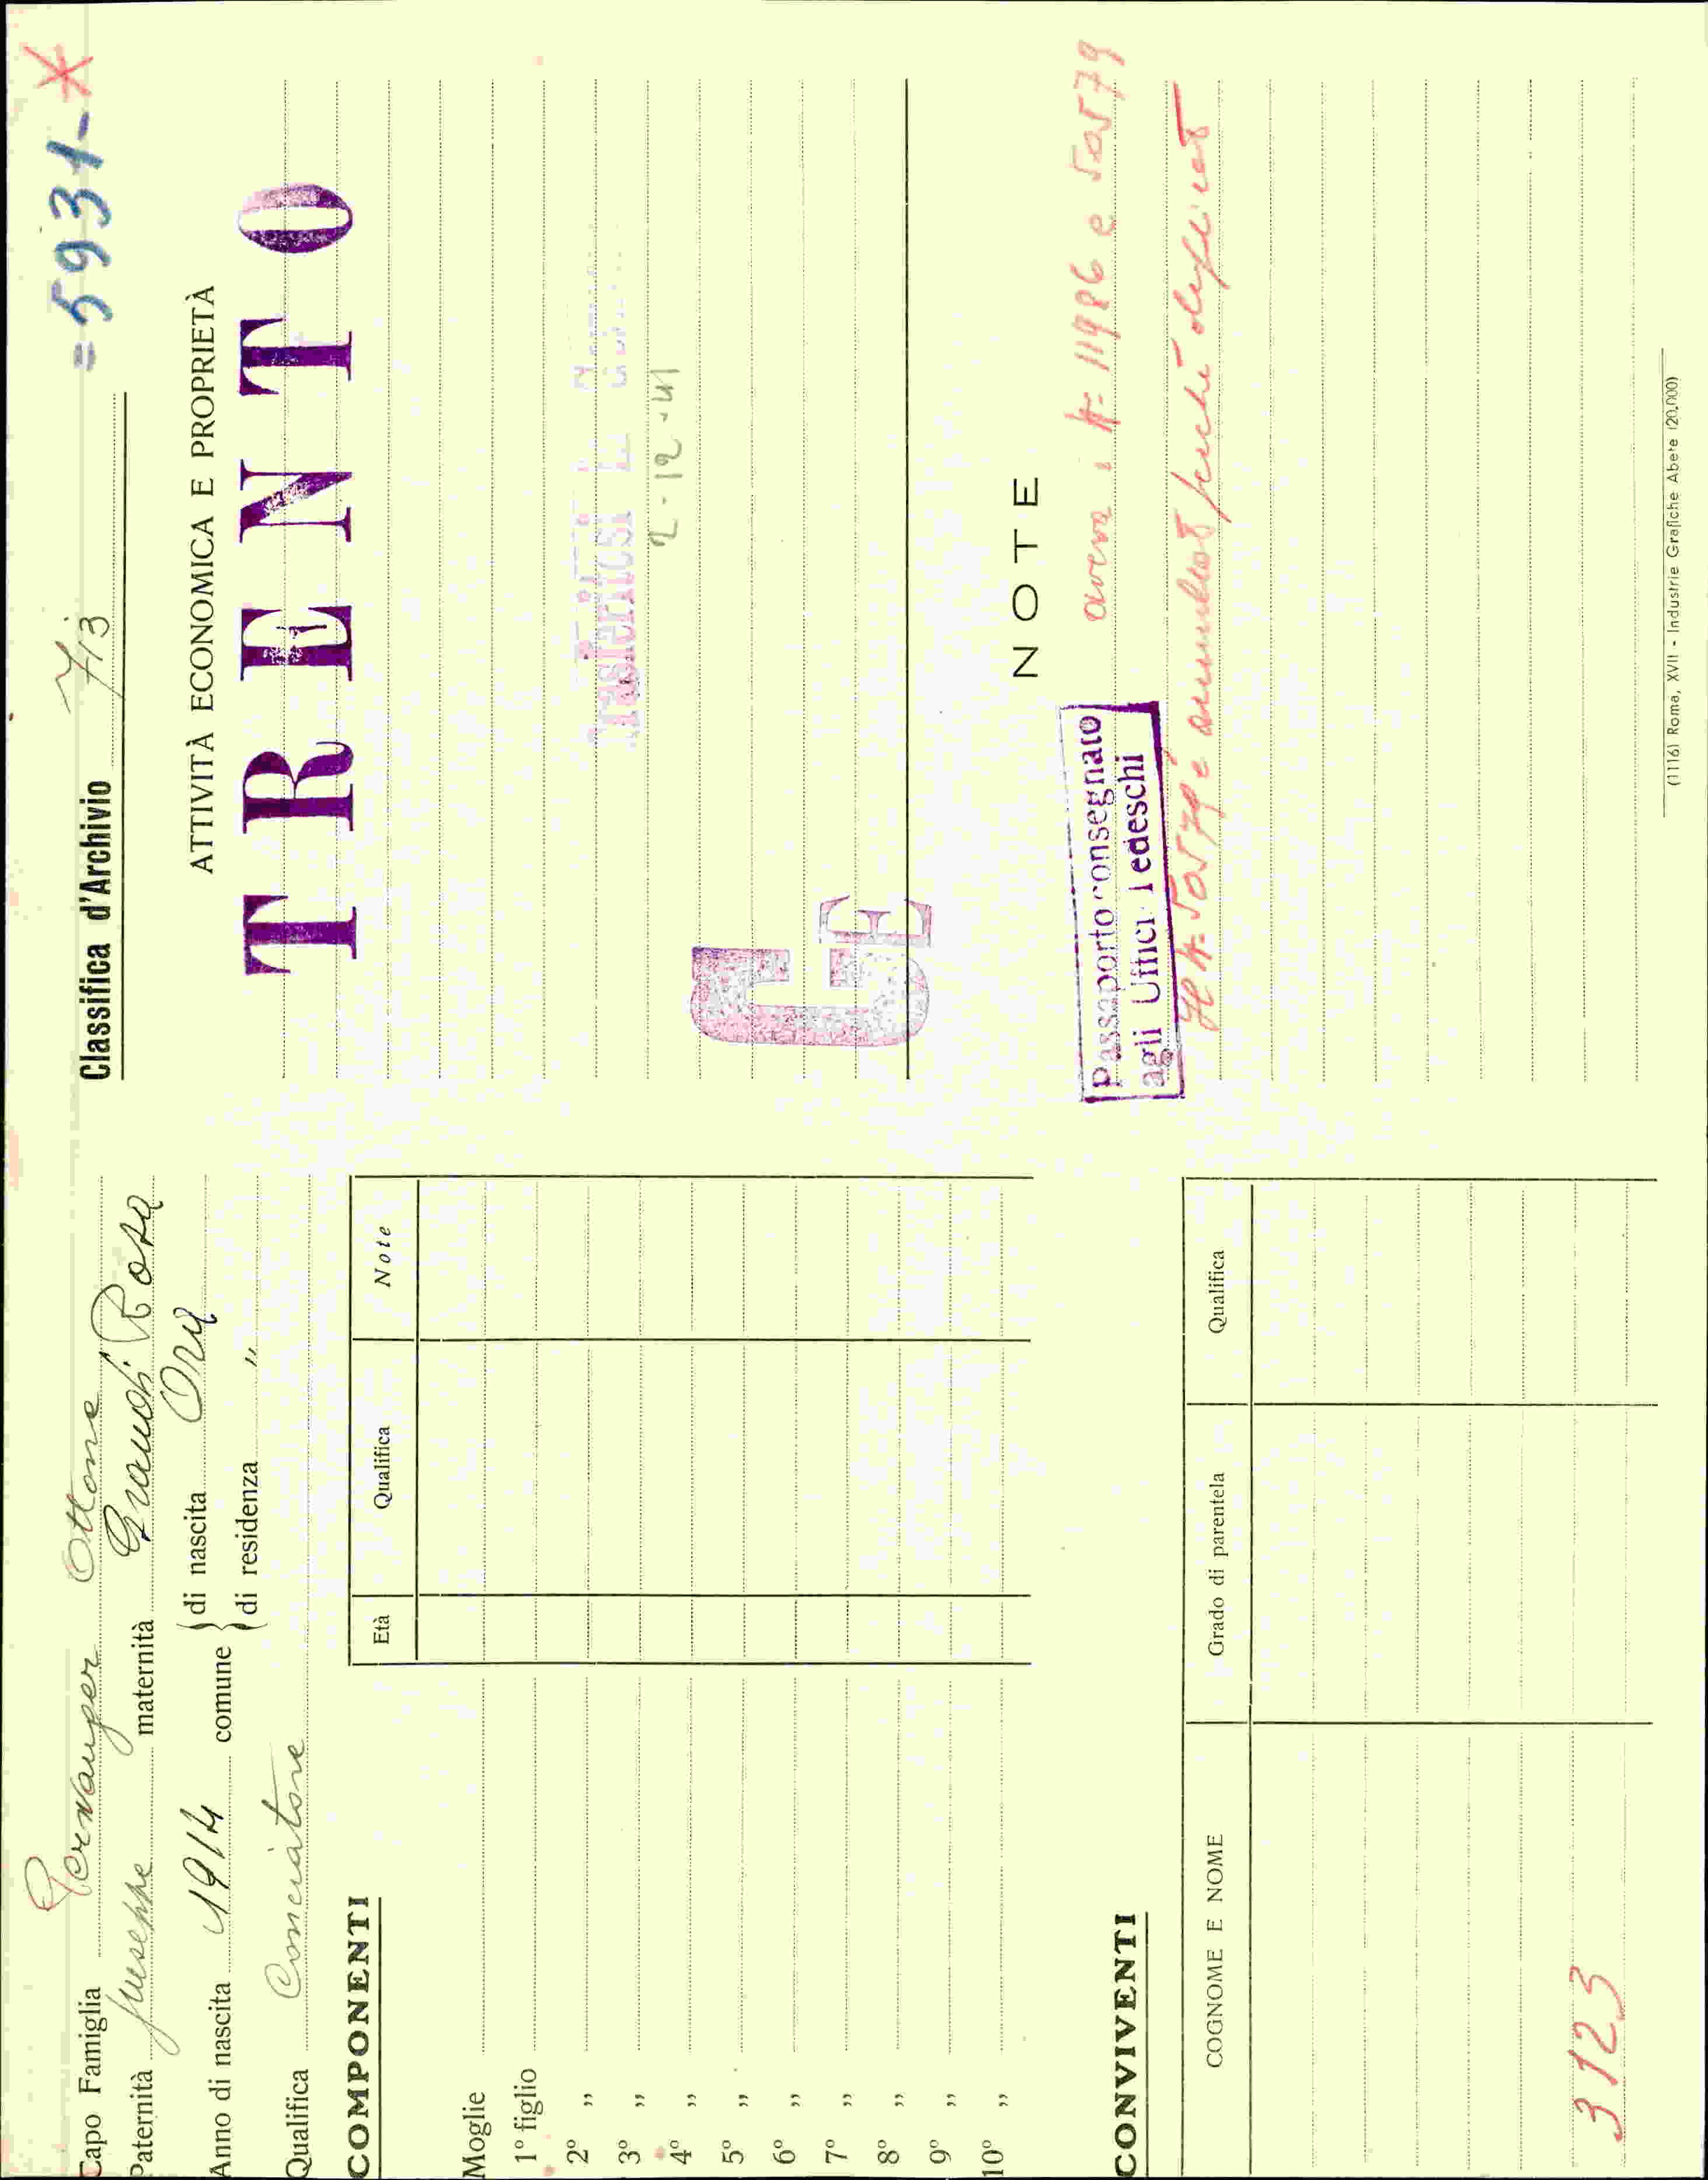 Capo Famiglia Pernanger Ottone
Paternità Giuseppe maternità Grandi Rosa
Anno di nascita 1914 comune { di nascita Ora
{ di residenza "
Qualifica Conciatore
COMPONENTI
Età Qualifica Note
Moglie
1° figlio
2° "
3° "
4° "
5° "
6° "
7° "
8° "
9° "
10° "
CONVIVENTI
COGNOME E NOME Grado di parentela Qualifica
3123
Classifica d'Archivio 7/3 = 5931-
ATTIVITÀ ECONOMICA E PROPRIETÀ
TRENTO
Trasferitosi il
2-12-41
GE
NOTE
Passaporto consegnato
agli Uffici Tedeschi
aveva i N= 11986 e 50579
Il N= 50579 è annullato perché
(1116) Roma, XVII - Industrie Grafiche Abete (20.000)